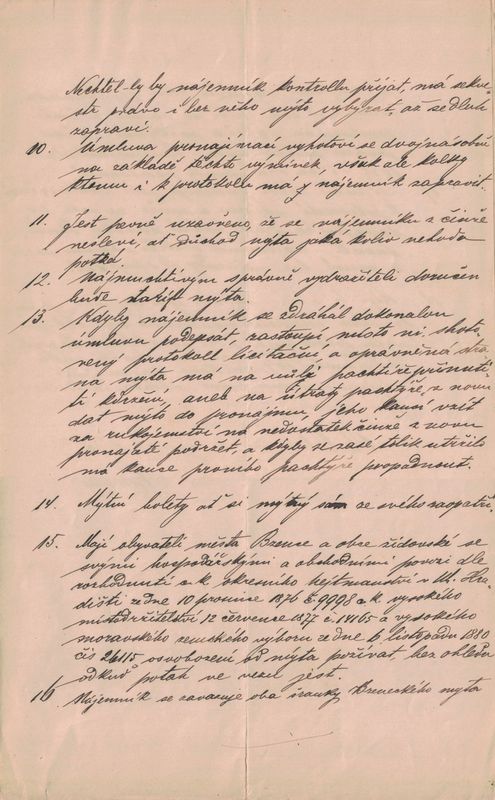 Nechtěl-li by nájemník kontrollu přijat, má sekve-
str právo i bez něho mýto vybýrat, až se dluh
zapraví.
10. Úmluva pronajímací vyhotoví se dvojnásobní
na základě těchto výmínek, však ale kolky
k tomu i k protokolu má nájemník zapravit.
11. Jest pevně uzavřeno, že se nájemníku z činže
nesleví, ať důchod mýta jaká koliv nehoda
potká
12. Nájmuchtivým správně vydražiteli doručen
bude tarif mýta.
13. Kdyby nájemník se zdráhal dokonalou
úmluvu podepsat, zastoupí místo ní shoto-
vený protokoll licitační, a oprávněná stra-
na mýta má na vůli pachtýře přinuti-
ti k řízení, aneb na útraty pachtýře z novu
dat mýto do pronajmu, jeho kauci vzít
za rukojemství na nedostatek činže z novu
pronajaté podržet, a kdyby se zase tolik utržilo
má kauce prvního pachtýře propadnout.
14. Mýtní bolety ať si mýtný sám ze svého zaopatří.
15. Mají obyvatelé města Bzence a obce židovské se
svými hospodářskými a obchodními povozi dle
rozhodnutí c. k. okresního hejtmanství v Uh. Hra-
dišti ze dne 10 prosince 1876 č. 9998 c. k. vysokého
místodržitelství 12 července 1877 č. 14165 a vysokého
moravského zemského výboru ze dne 6 listopadu 1880
čís 26115 osvobození od mýta požívat, bez ohledu
odkud potah ve vezel jest.
16. Nájemník se zavazuje oba šranky Bzeneckého mýta